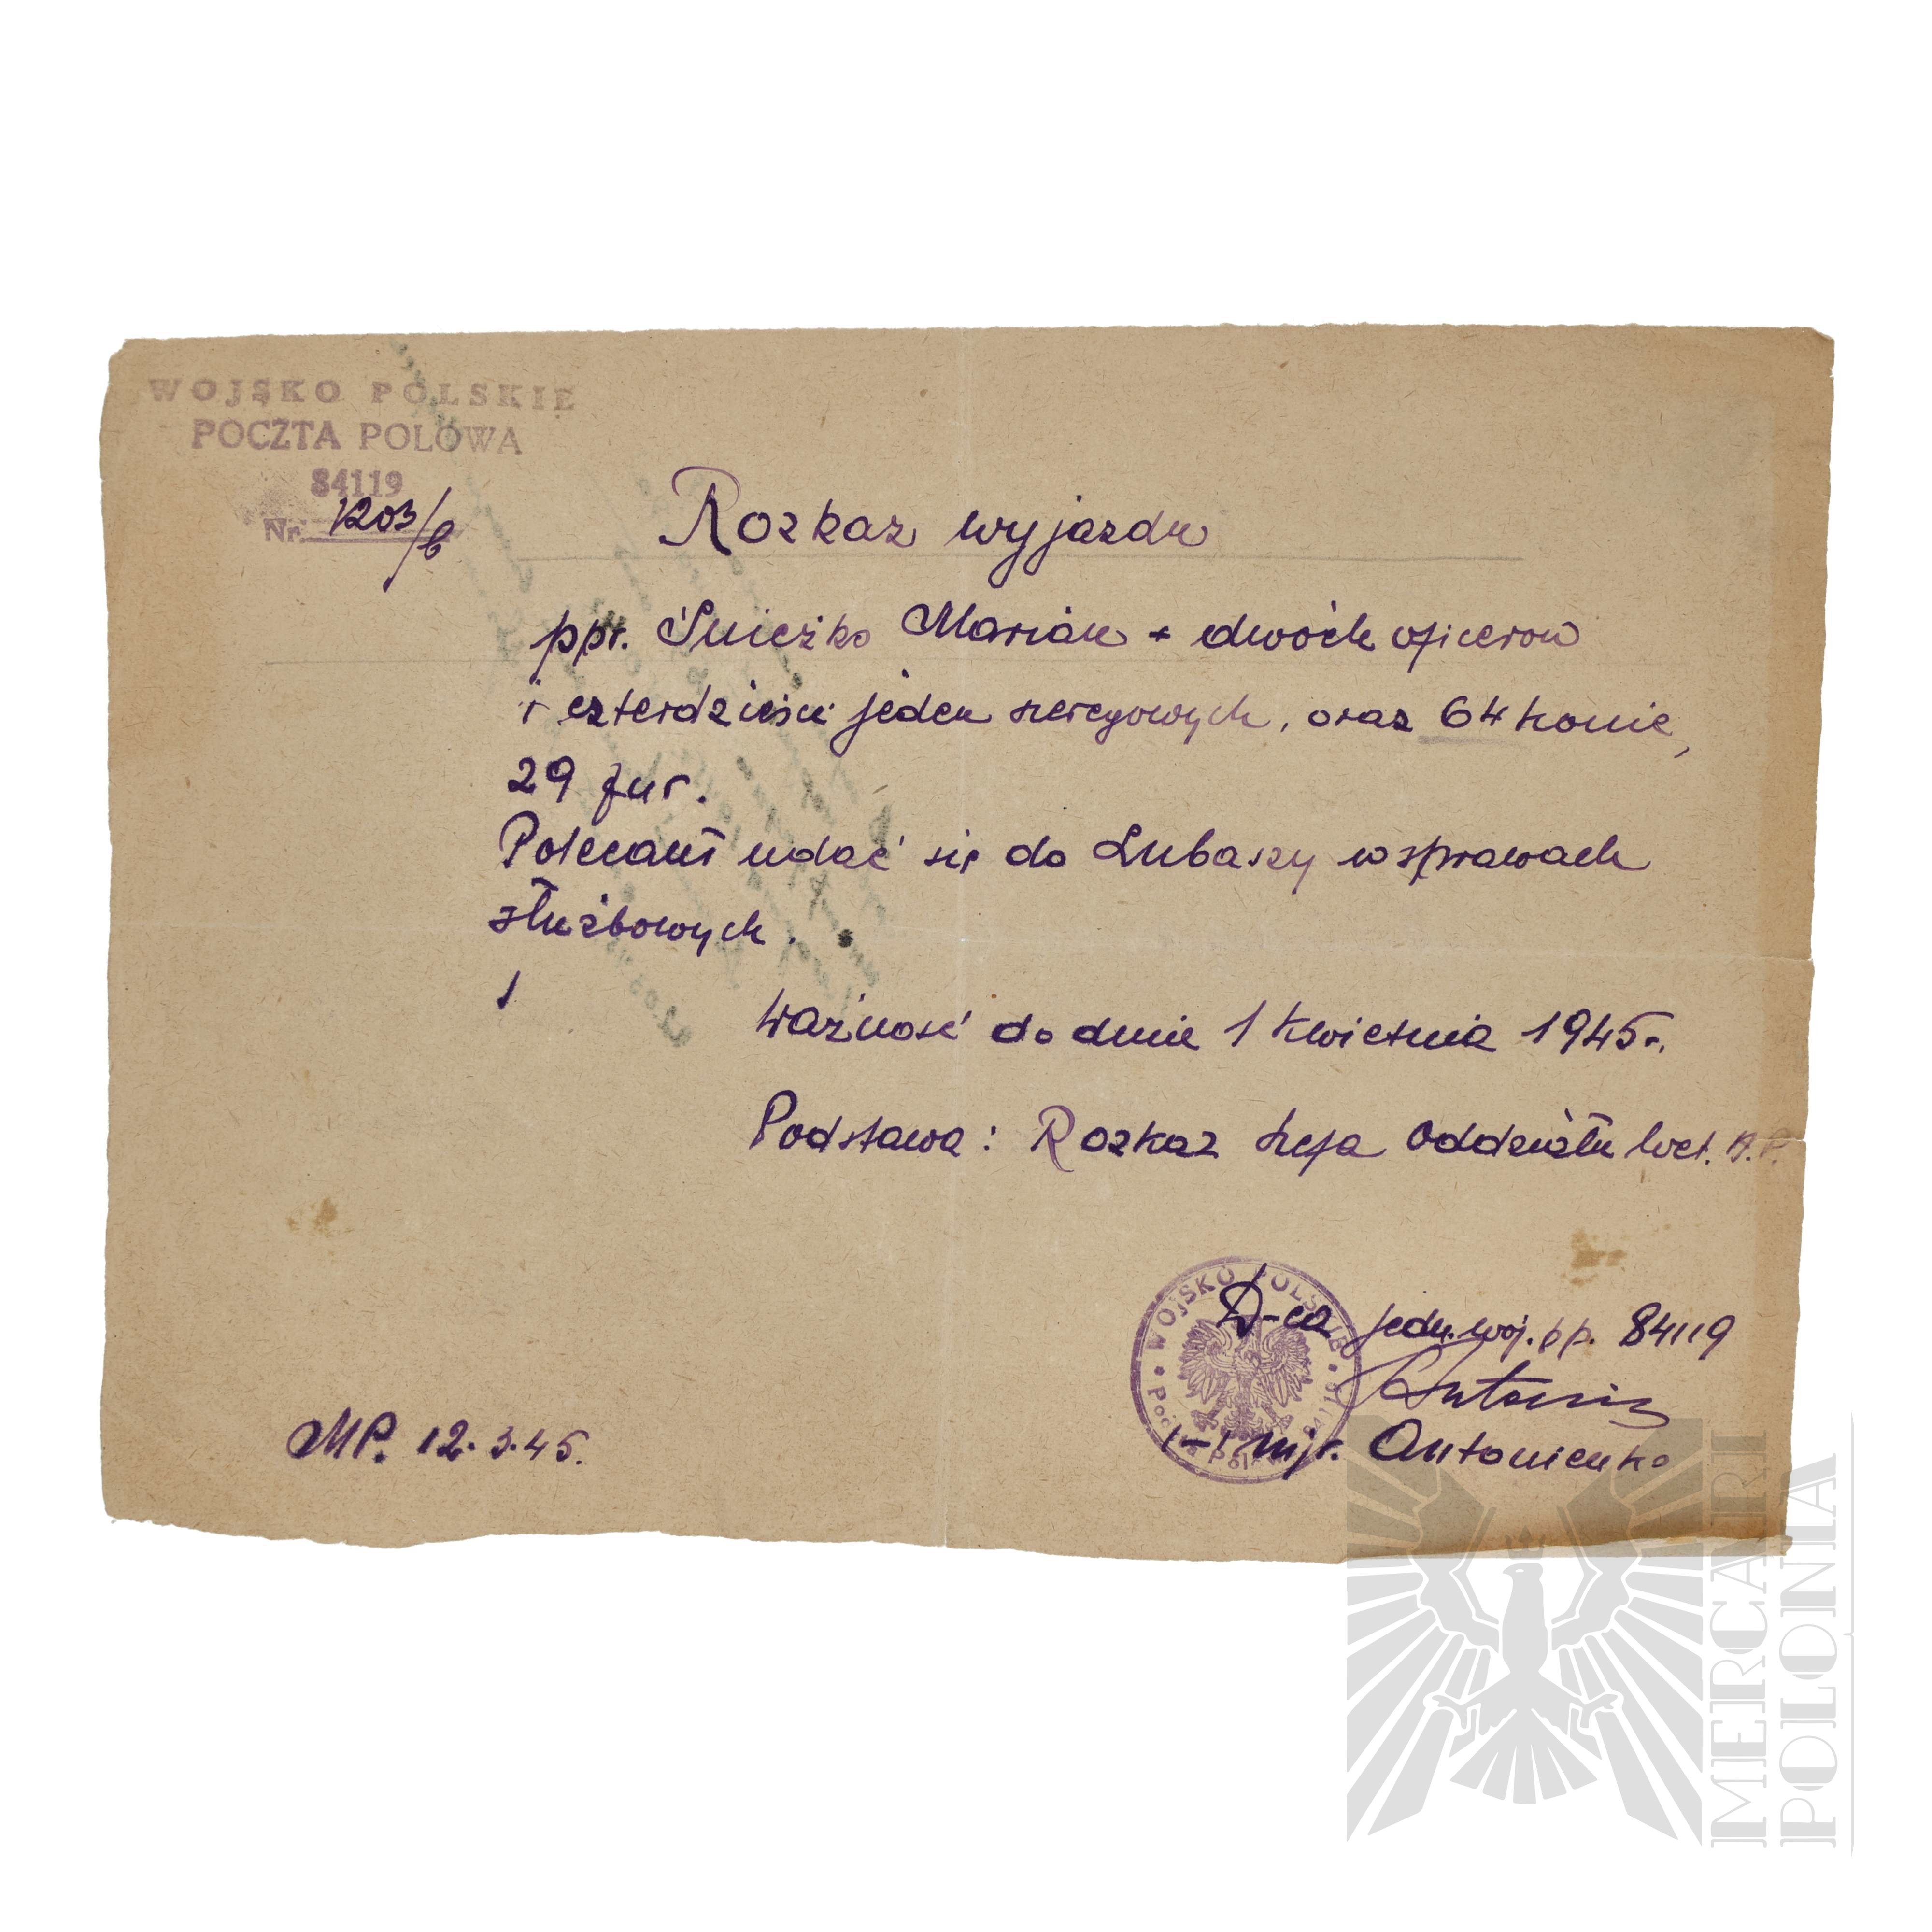 WOJSKO POLSKIE
POCZTA POLOWA
84119
Nr. 1203/b
Rozkaz wyjazdu
ppr. Śnieżko Marian + dwóch oficerow
i czterdzieści jeden szeregowych, oraz 64 konie,
29 fur.
Polecam udać się do Lubaszy w sprawach
służbowych.
Ważność do dnie 1 kwietnia 1945r.
Podstawa: Rozkaz szefa Oddziału Wet.
WOJSKO POLSKIE
D-ca jedn. woj. pp. 84119
/-/ mjr. Antonienko
MP. 12.3.45.
MERCARI
POLONIA